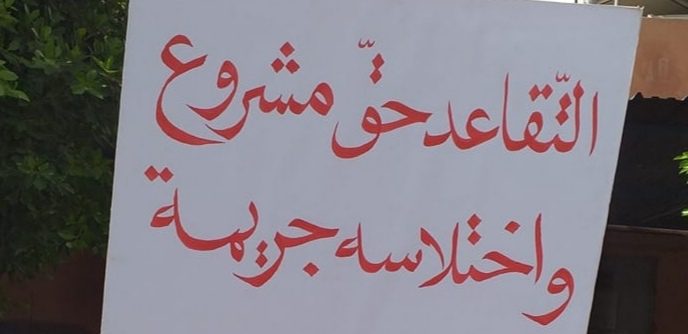 التّقاعد حقّ مشروع
واختلاسه جريمة